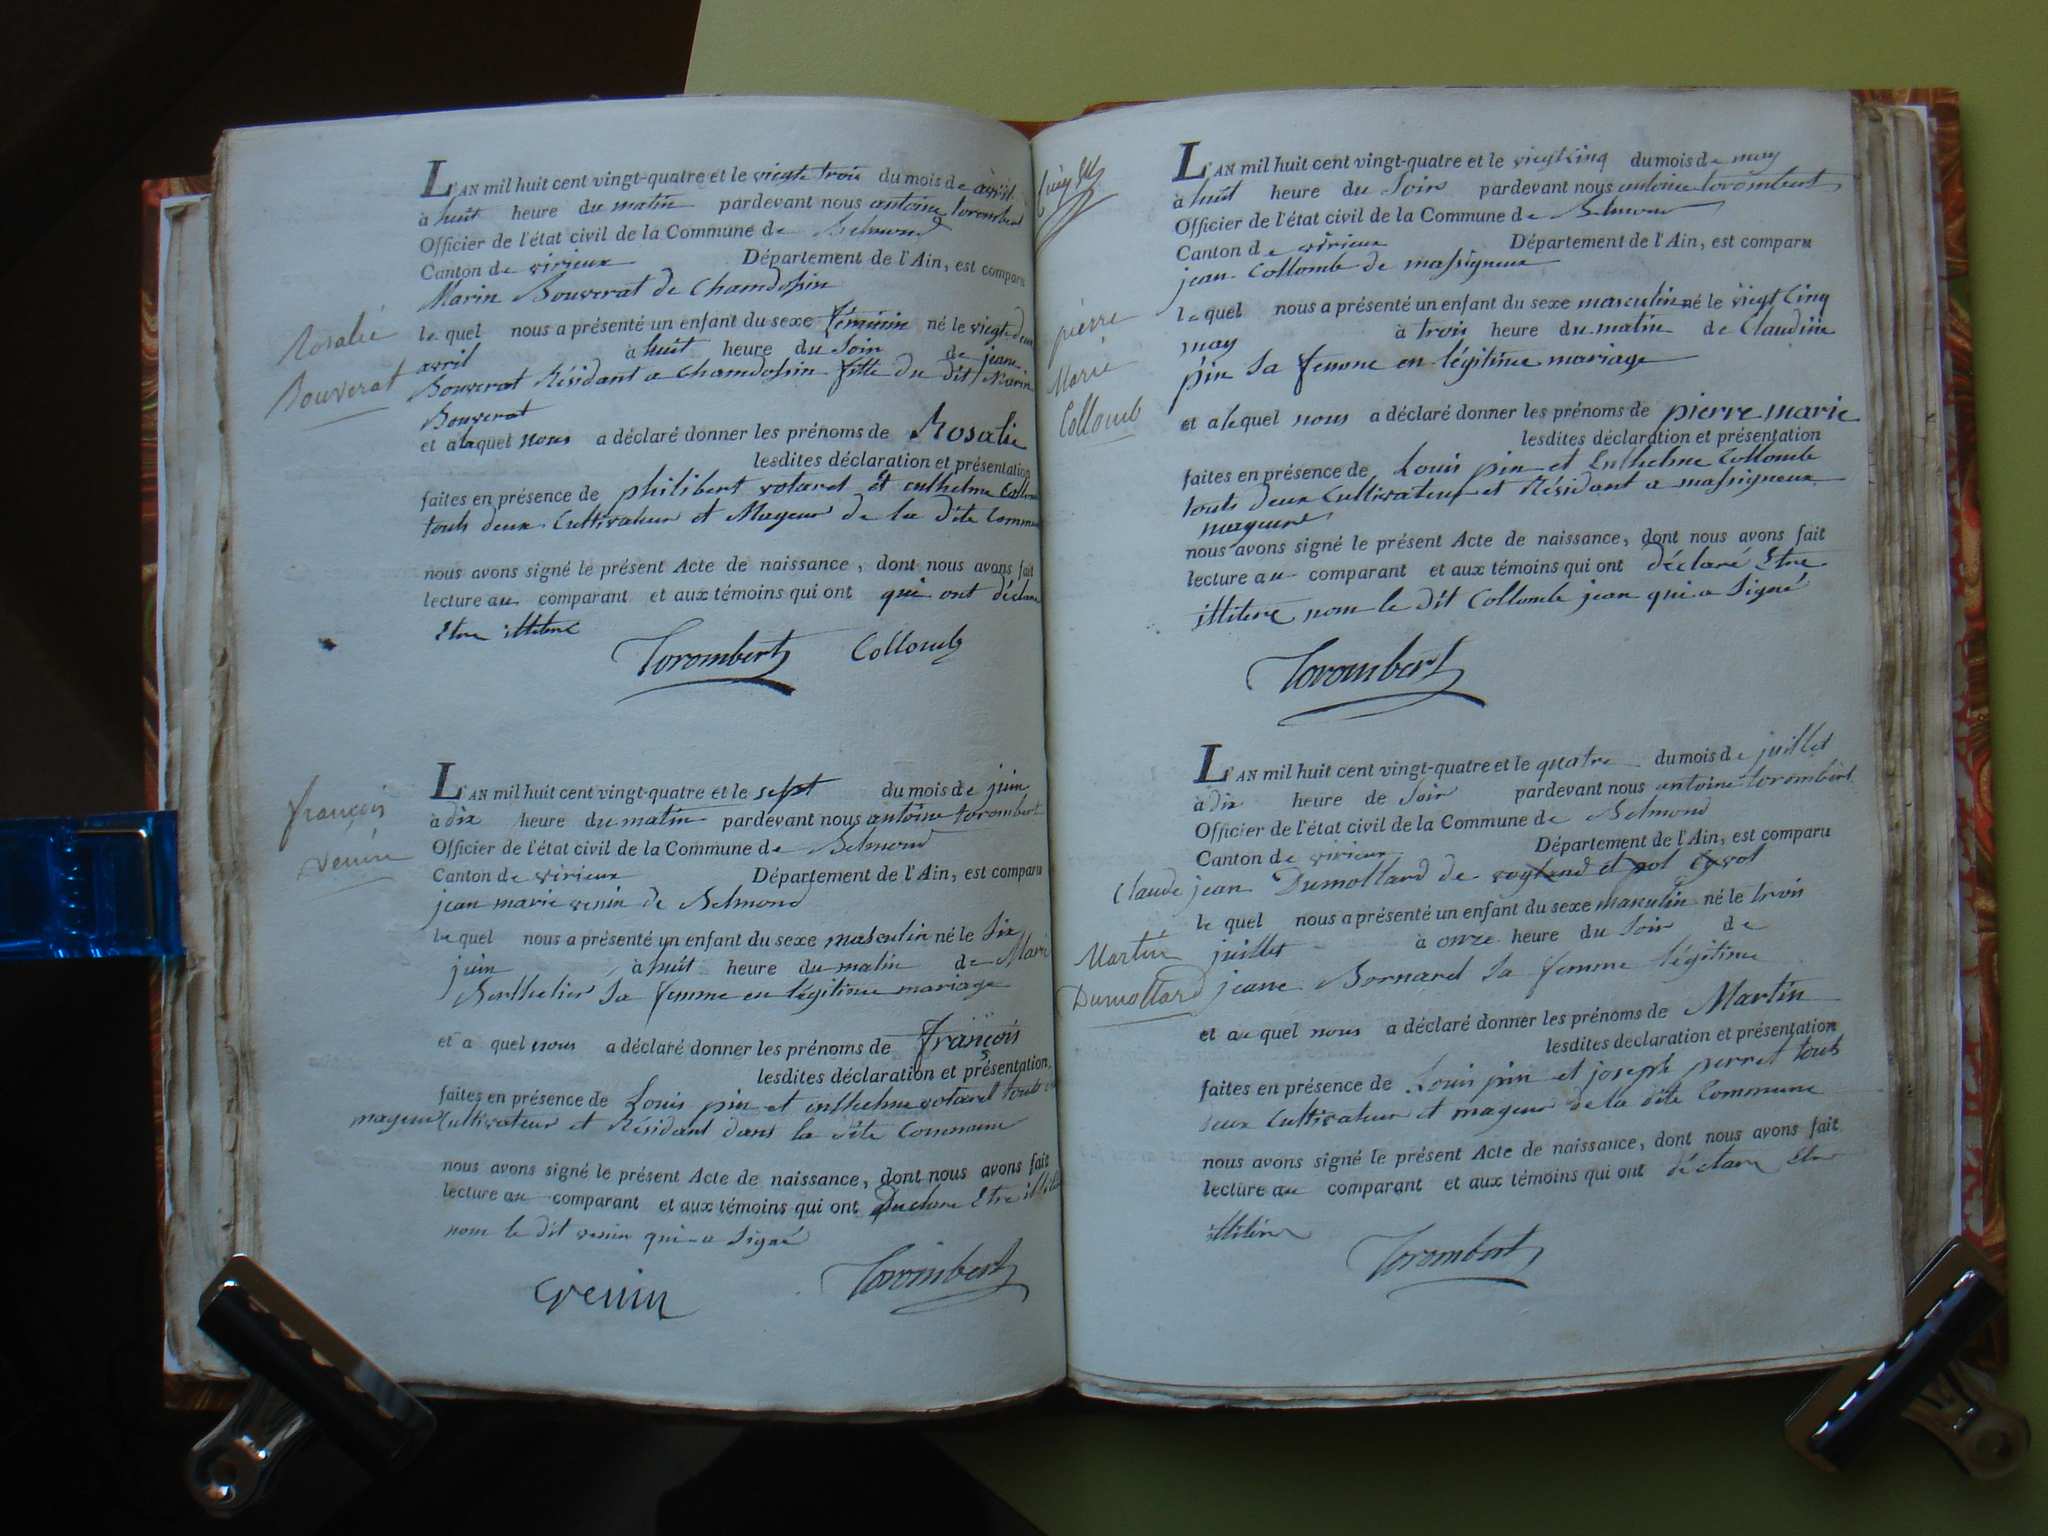 L'AN mil huit cent vingt-quatre et le vingte trois du mois de avril
à huit heure du matin pardevant nous antoine torombert
Officier de l'état civil de la Commune de Belmond
Canton de virieux Département de l'Ain, est comparu
Marin Bouverat de Chamdossin
Rosalie
Bouverat
le quel nous a présenté un enfant du sexe féminin né le vingt deux
avril à huit heure du Soir de jeane
Bouverat Résidant a Chamdossin fille du dit Marin
Bouverat
et a laquel nous a déclaré donner les prénoms de Rosalie
lesdites déclaration et présentation
faites en présence de philibert votaret Et enthelme Collomb
touts deux Cultivateur et Mayeur de la dite Commune
nous avons signé le présent Acte de naissance, dont nous avons fait
lecture au comparant et aux témoins qui ont qui ont déclare
Etre illitere
Torombert Collomb
L'AN mil huit cent vingt-quatre et le sept du mois de juin
à dix heure du matin pardevant nous antoine torombert
Officier de l'état civil de la Commune de Belmond
Canton de virieux Département de l'Ain, est comparu
jean marie venin de Belmond
françois
venin
le quel nous a présenté un enfant du sexe masculin né le Six
juin à huit heure du matin de Marie
Berthelier Sa femme en légitime mariage
et a quel nous a déclaré donner les prénoms de françois
lesdites déclaration et présentation
faites en présence de Louis pin et enthelme votaret touts
mayeur Cultivateur et Résidant dans la dite Commune
nous avons signé le présent Acte de naissance, dont nous avons fait
lecture au comparant et aux témoins qui ont Declare Etre
nom le dit venin qui a Signé
venin Torombert
L'AN mil huit cent vingt-quatre et le vingt cinq du mois de may
à huit heure du Soir pardevant nous antoine torombert
Officier de l'état civil de la Commune de Belmond
Canton de virieux Département de l'Ain, est comparu
jean Collomb de massigneux
pierre
Marie
Collomb
le quel nous a présenté un enfant du sexe masculin né le vingt Cinq
may à trois heure du matin de Claudine
pin Sa femme en légitime mariage
et a lequel nous a déclaré donner les prénoms de pierre marie
lesdites déclaration et présentation
faites en présence de Louis pin et Enthelme Collomb
touts deux Cultivateur et Résidant a massigneux
mayeure
nous avons signé le présent Acte de naissance, dont nous avons fait
lecture au comparant et aux témoins qui ont déclaré Etre
illitere nom le dit Collomb jean qui a Signé
Torombert
L'AN mil huit cent vingt-quatre et le quatre du mois de juillet
à dix heure de Soir pardevant nous antoine torombert
Officier de l'état civil de la Commune de Belmond
Canton de virieux Département de l'Ain, est comparu
Claude jean Dumollard de
le quel nous a présenté un enfant du sexe masculin né le trois
juillet à onze heure du Soir de
Martin
Dumollard
jeane Bornard Sa femme légitime
et a quel nous a déclaré donner les prénoms de Martin
lesdites déclaration et présentation
faites en présence de Louis pin et joseph perret touts
deux Cultivateur et mayeur de la dite Commune
nous avons signé le présent Acte de naissance, dont nous avons fait
lecture au comparant et aux témoins qui ont déclare Etre
illitere
Torombert